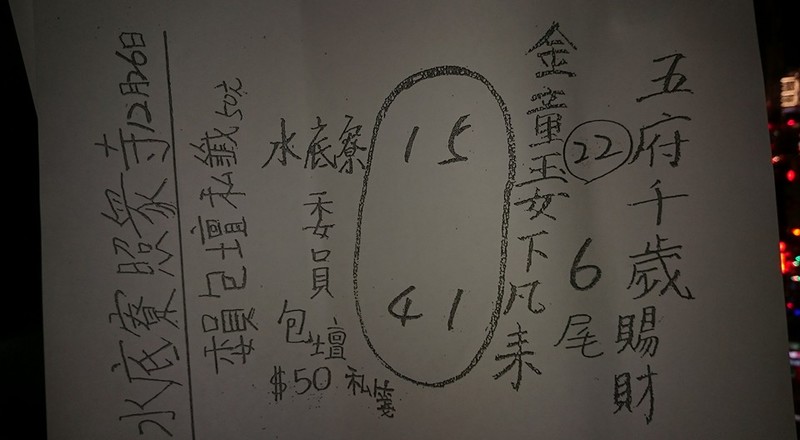 五府千歲賜財
22 6尾
金童玉女下凡來
15
41
水底寮
委員
包壇
$50 私籤
賴包壇私籤50元
水底寮照眾寺12月26日